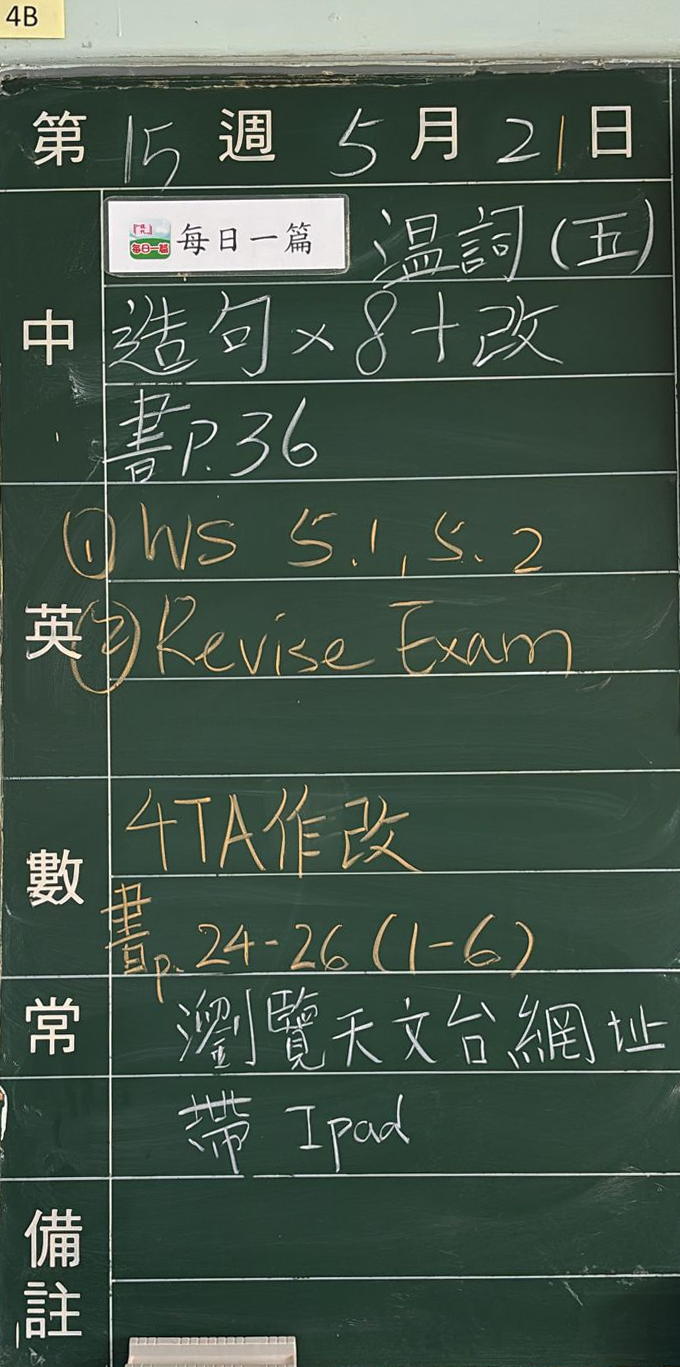 4B
第 15 週 5 月 21 日
中
每日一篇 每日一篇 溫詞(五)
造句×8+改
書P.36
英
①WS 5.1, 5.2
②Revise Exam
數
4TA作改
書p.24-26(1-6)
常
瀏覽天文台網址
帶 Ipad
備註